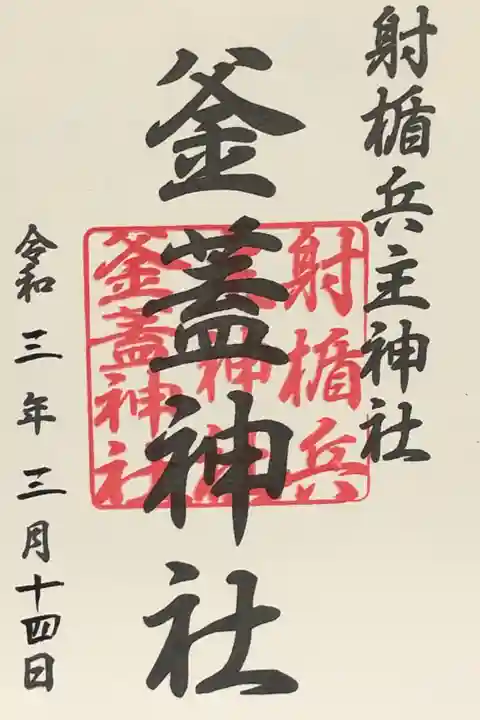 射楯兵主神社
釜蓋神社
令和三年三月十四日
射楯兵
主神社
釜蓋神社